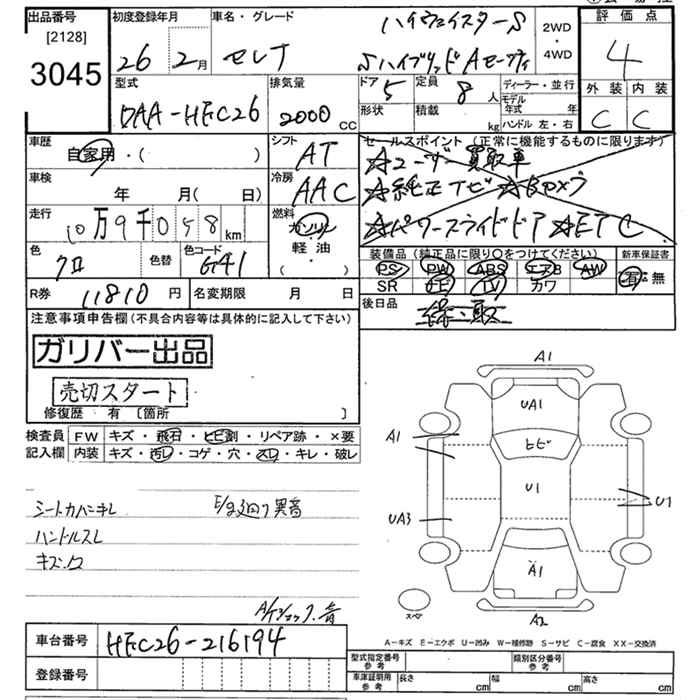 出品番号 初度登録年月 車名・グレード
[2128]
3045
26 2月 セレナ ハイウェイスターS
SハイブリッドAセーフティ
2WD
・
4WD
評価点
4
型式 排気量 ドア 5 定員 8人 ディーラー・並行
DAA-HFC26 2000 CC
形状 積載 kg モデル年式 年
ハンドル 左・右
外装 内装
C C
車歴 自家用・( )
シフト AT
セールスポイント(正常に機能するものに限ります)
☆ユーザー買取車
☆純正ナビ ☆Bカメラ
☆パワースライドドア ☆ETC
車検 年 月(日)
冷房 AAC
走行 10万9千058km
燃料 ガソリン
軽・油
( ・ )
色 クロ 色替 色コード G41
装備品(純正品に限り○をつけてください) 新車保証書
PS PW ABS エアB AW
SR ナビ TV カワ
有・無
R券 11810円 名変期限 月 日
後日品 録・取
注意事項申告欄(不具合内容等は具体的に記入して下さい)
ガリバー出品
売切スタート
修復歴 有 〔箇所 〕
検査員 FW キズ・飛石・ヒビ割・リペア跡・×要
記入欄 内装 キズ・汚レ・コゲ・穴・スレ・キレ・破レ
シートカバーキレ E/gまわり異音
ハンドルスレ
キズ.ヌケ
A/Tショック.音
A1
UA1
A1
ヒビ
U1
U1
UA3
A1
スペア
A2
A-キズ E-エクボ U-凹み W-補修跡 S-サビ C-腐食 XX-交換済
車台番号 HFC26-216194
登録番号
型式指定番号 参考 類別区分番号 参考
車庫証明用 参考 長さ cm 幅 cm 高さ cm